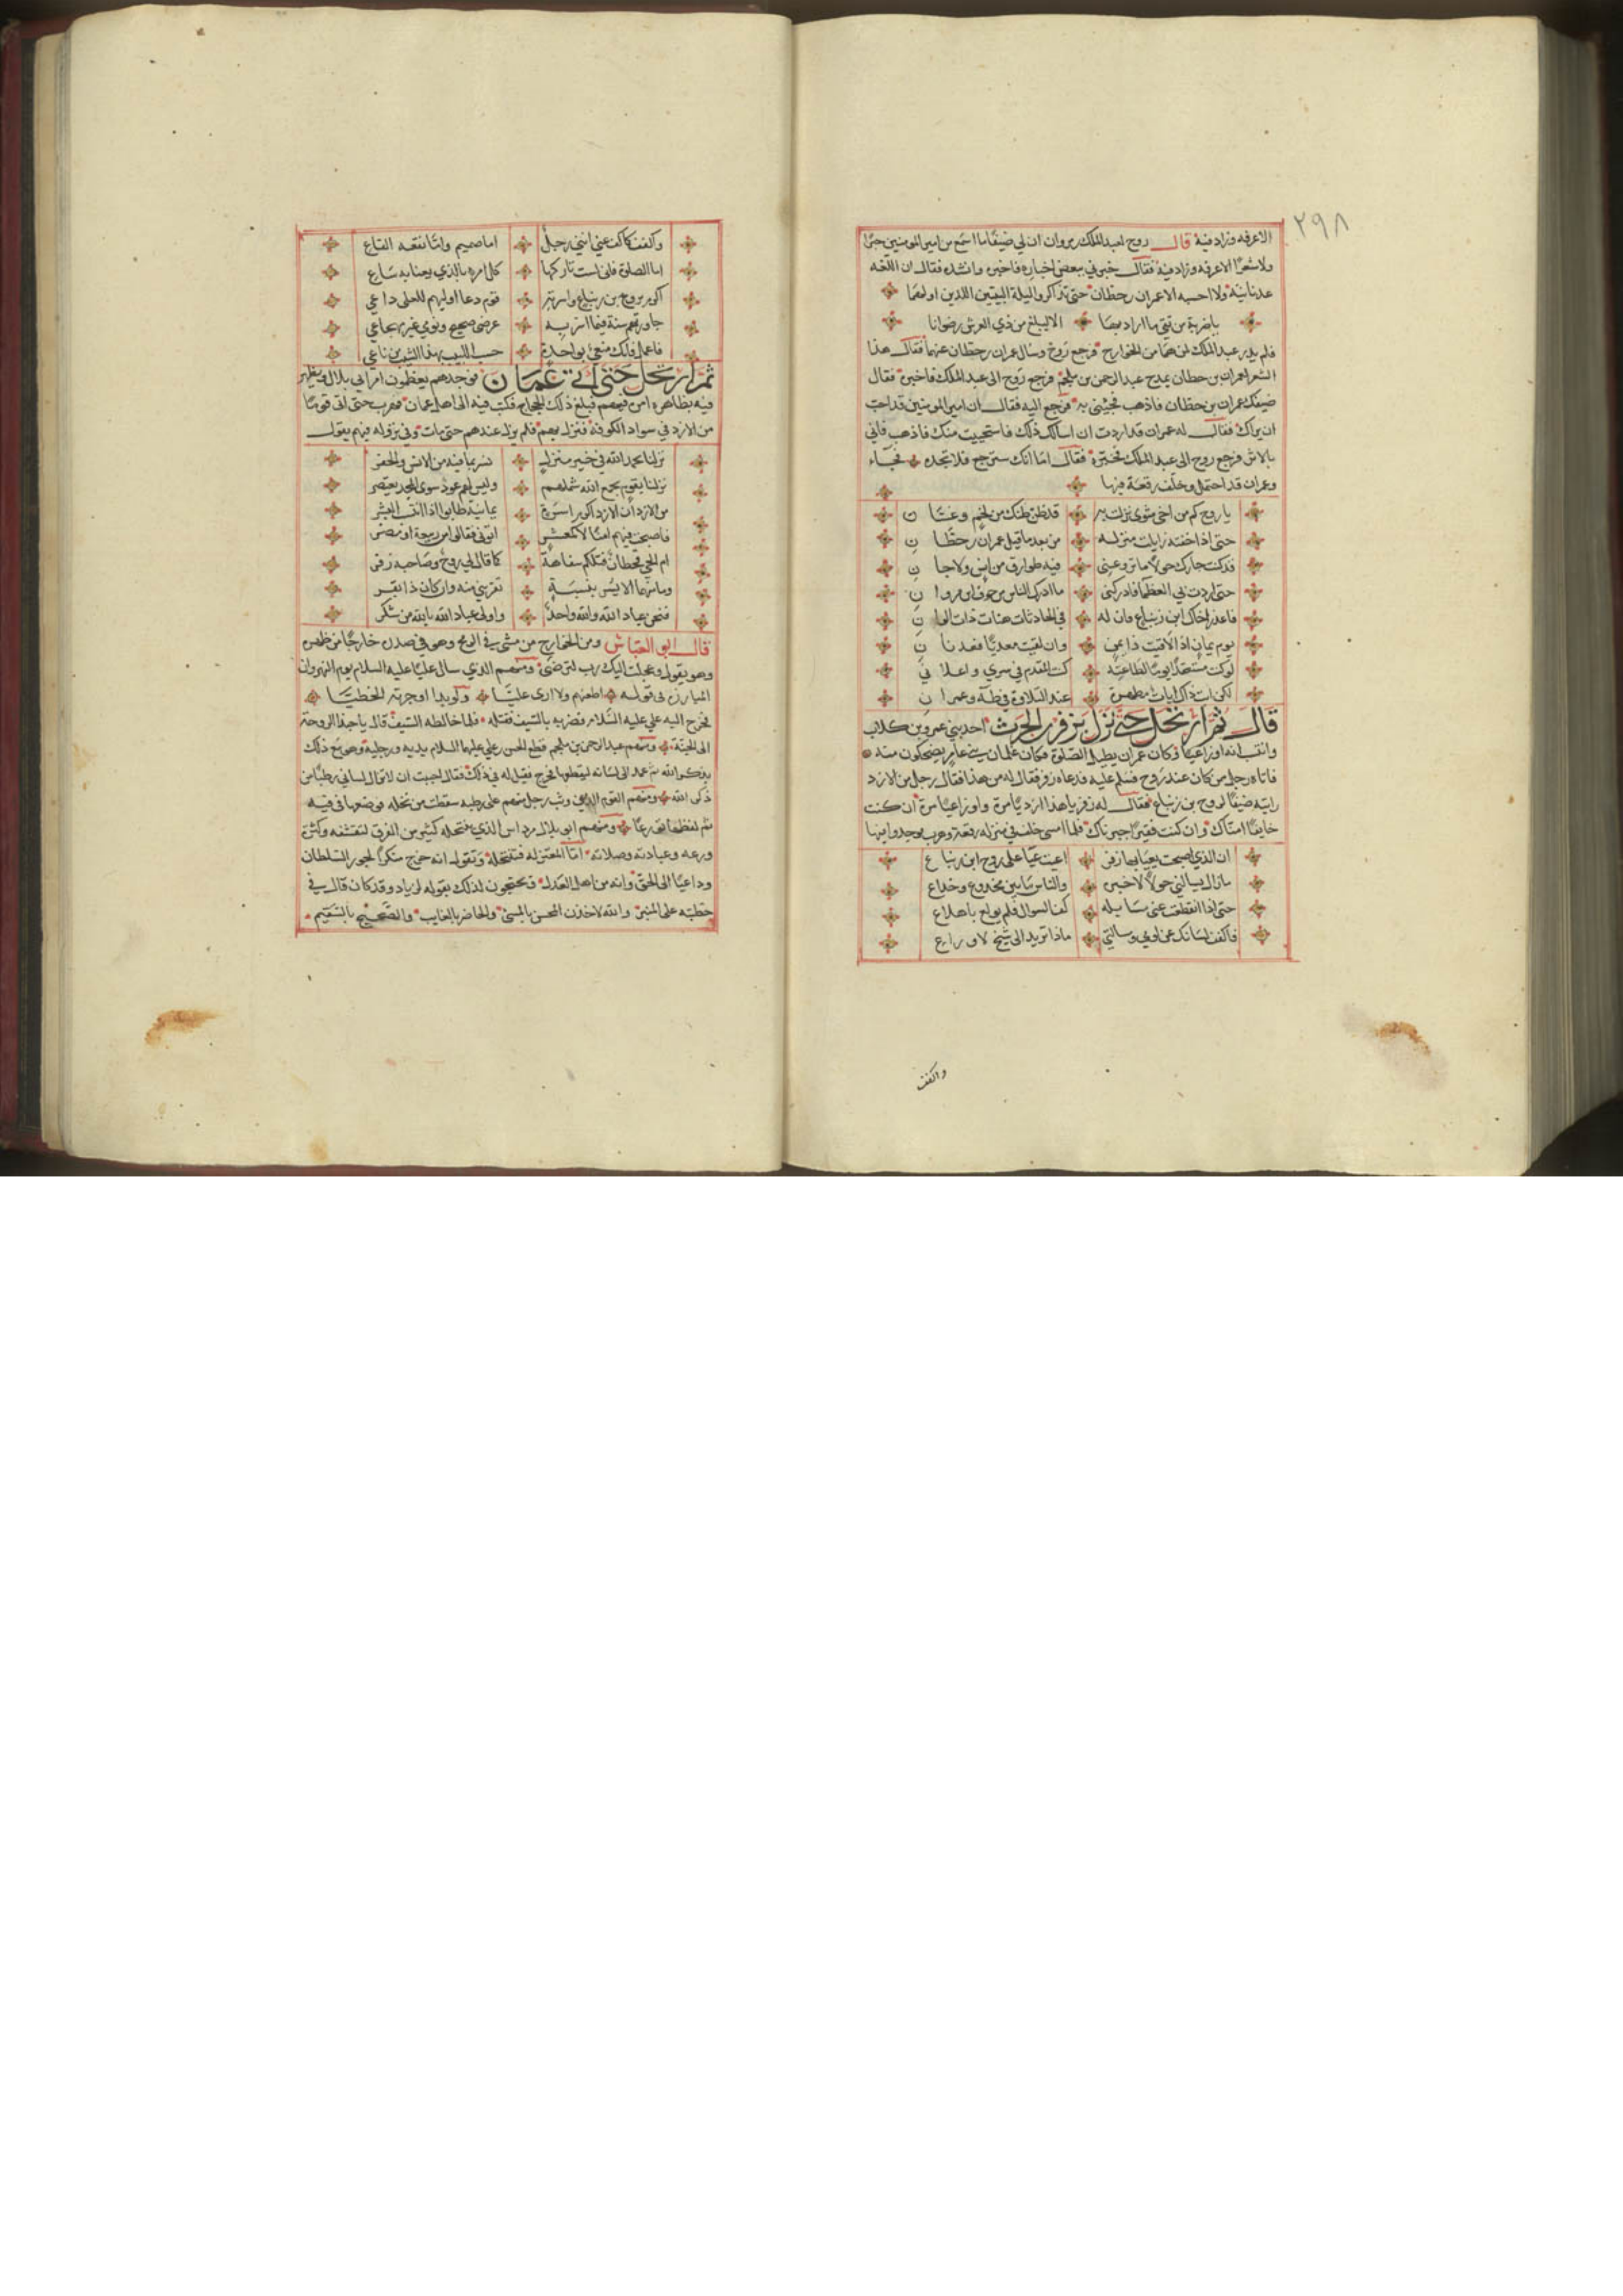 ٢٩٨
الا عرفه وزاد فيه قال روح لعبد الملك بن مروان ان لي ضيفا ما اسمع من امير المومنين خبرا
ولا شعرا الا عرفه وزاد فيه فقال خبرني ببعض اخباره فاخبره وانشده فقال ان اللغه
عدنانية ولا احسبه الا عمران بن حطان حتى تذاكروا ليلة البيتين اللذين اولهما
يا ضربة من تقي ما اراد بها الا ليبلغ من ذي العرش رضوانا
فلم يدر عبد الملك لمن هما من الخوارج فرجع روح وسال عمران بن حطان عنهما فقال هذا
الشعر لعمران بن حطان يمدح عبد الرحمن بن ملجم فرجع روح الى عبد الملك فاخبره فقال
ضيفك عمران بن حطان فاذهب فجئني به فرجع اليه فقال ان امير المومنين قد احب
ان يراك فقال له عمران قد اردت ان اسالك ذلك فاستحييت منك فاذهب فاني
بالاثر فرجع روح الى عبد الملك فخبره فقال اما انك سترجع فلا تجده فجاء
وعمران قد احتمل وخلف رقعة فيها
يا روح كم من اخي مثوى نزلت به قد ظن ظنك من لخم وغسان
حتى اذا خفته زايلت منزله من بعد ما قيل عمران بن حطان
قد كنت جارك حولا ما تروعني فيه طوارق من انس ولا جان
حتى اردت بي العظما فادركني ما ادرك الناس من خوف ابن مروان
فاعذر اخاك ابن زنباع فان له في الحادثات هنات ذات الوان
يوم يمان اذا لاقيت ذا يمن وان لقيت معديا فعدنان
لو كنت مستغفرا يوما لطاغية كنت المقدم في سري واعلاني
لكن ابت ذاك ايات مطهرة عند التلاوة في طه وعمران
قال ثم ارتحل حتى نزل بزفر بن الحرث احد بني عمرو بن كلاب
وانتسب له اوزاعيا وكان عمران يطيل الصلوة وكان غلمان بني عامر يضحكون منه
فاتاه رجل ممن كان عند روح فسلم عليه فدعاه زفر فقال له من هذا فقال رجل من الازد
رايته ضيفا لروح بن زنباع فقال له زفر يا هذا ازديا مرة واوزاعيا مرة ان كنت
خايفا امناك وان كنت فقيرا جبرناك فلما امسى خلف في منزله رقعة وهرب فوجدوا فيها
ان الذي اصبحت يعيا بها زفر اعيت عيا على روح ابن زنباع
ما زال يسالني حولا لاخبره والناس ما بين مخدوع وخداع
حتى اذا انقطعت عني مسايله كف السوال فلم يولع باهلاع
فاكفف لسانك عن لومي ومسالتي ماذا تريد الى شيخ لاوزاع
واكفف
واكفف كما كف عني انني رجل اما صميم واما فقعة القاع
اما الصلوة فاني لست تاركها كل امرء بالذي يعنا به ساع
اكرم بروح بن زنباع واسرته قوم دعا اوليهم للعلى داعي
جاورتهم سنة فيما اسر به عرضي صحيح ونومي غير تهجاعي
فاعمل فانك منعي بواحدة حسب اللبيب بهذا الشيب من ناعي
ثم ارتحل حتى اتى عمان فوجدهم يعظمون امر ابي بلال ويظهر
فيه فظاهر امره فيهم فبلغ ذلك الحجاج فكتب فيه الى اهل عمان فهرب حتى اتى قوما
من الازد في سواد الكوفة فنزل بهم فلم يزل عندهم حتى مات وفي نزوله فيهم يقول
نزلنا بحمد الله في خير منزل نسر بما فيه من الانس والخفر
نزلنا بقوم يجمع الله شملهم وليس لهم عود سوى المجد يعتصر
من الازد ان الازد اكرم اسرة يمانية طابوا اذا انتسب البشر
فاصبحت فيهم امنا لا كمعشر اتوني فقالوا من ربيعة او مضر
ام الحي قحطان فتلكم سفاهة كما قال لي روح وصاحبه زفر
وما منهما الا يسر بنسبة تقربني منه وان كان ذا نفر
فنحن عباد الله والله واحد واولى عباد الله بالله من شكر
قال ابو العباس ومن الخوارج من مشى في الرمح وهو في صدره خارجا من ظهره
وهو يقول وعجلت اليك رب لترضى ومنهم الذي سال عليا عليه السلام يوم النهروان
المبارزة في قوله اطعنهم ولا ارى عليا ولو بدا اوجرته الخطيا
فخرج اليه علي عليه السلام فضربه بالسيف فقتله فلما خالطه السيف قال يا حبذا الروحة
الى الجنة ومنهم عبد الرحمن بن ملجم قطع الحسن بن علي عليهما السلام يديه ورجليه وهو مع ذلك
يذكر الله ثم عمد الى لسانه ليقطعها فجزع فقيل له في ذلك فقال احببت ان لا يزال لساني رطبا من
ذكر الله ومنهم القوم الذين وثب رجل منهم على رطبة سقطت من نخلة فوضعها في فيه
ثم لفظها تورعا ومنهم ابو بلال مرداس الذي ينتحله كثير من الفرق لتقشفه وكثرة
ورعه وعبادته وصلاته اما المعتزله فتنتحله وتقول انه خرج منكرا لجور السلطان
وداعيا الى الحق وانه من اهل العدل ويحتجون لذلك بقوله لزياد وقد كان قال في
خطبته على المنبر والله لاخذن المحسن بالمسئ والحاضر بالغايب والصحيح بالسقيم